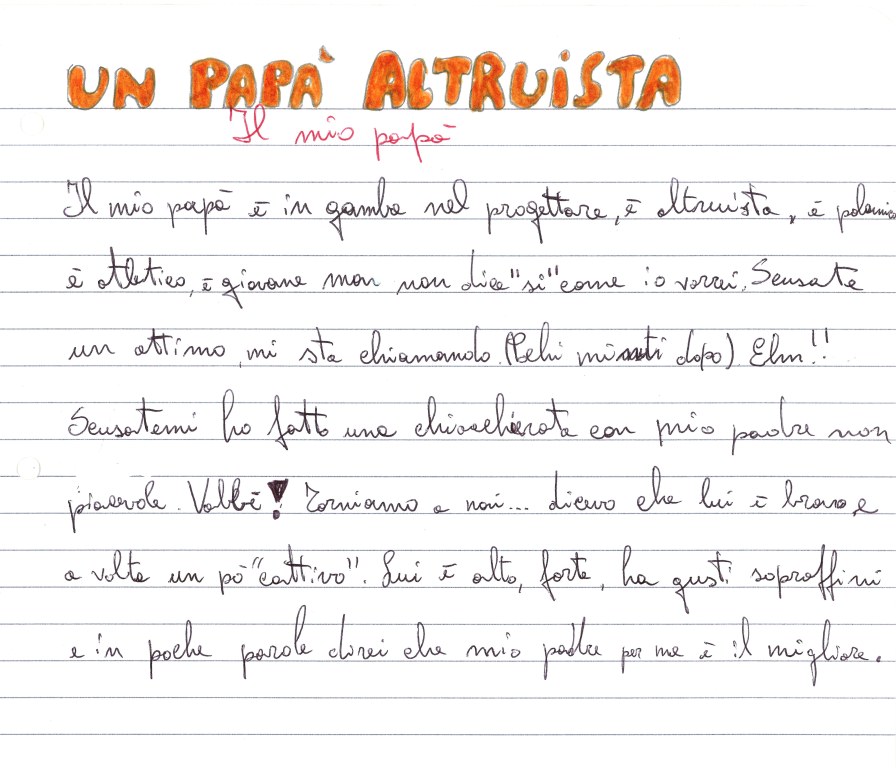 UN PAPÀ ALTRUiSTA
Il mio papà
Il mio papà è in gamba nel progettare, è altruista, è polemico
è atletico, è giovane man non dice "si" come io vorrei. Scusate
un attimo, mi sta chiamando. (Pochi minuti dopo). Ehm!!
Scusatemi ho fatto una chiacchierata con mio padre non
piacevole. Vabbè! Torniamo a noi... dicevo che lui è bravo, e
a volte un pò "cattivo". Lui è alto, forte, ha gusti sopraffini
e in poche parole direi che mio padre per me è il migliore.